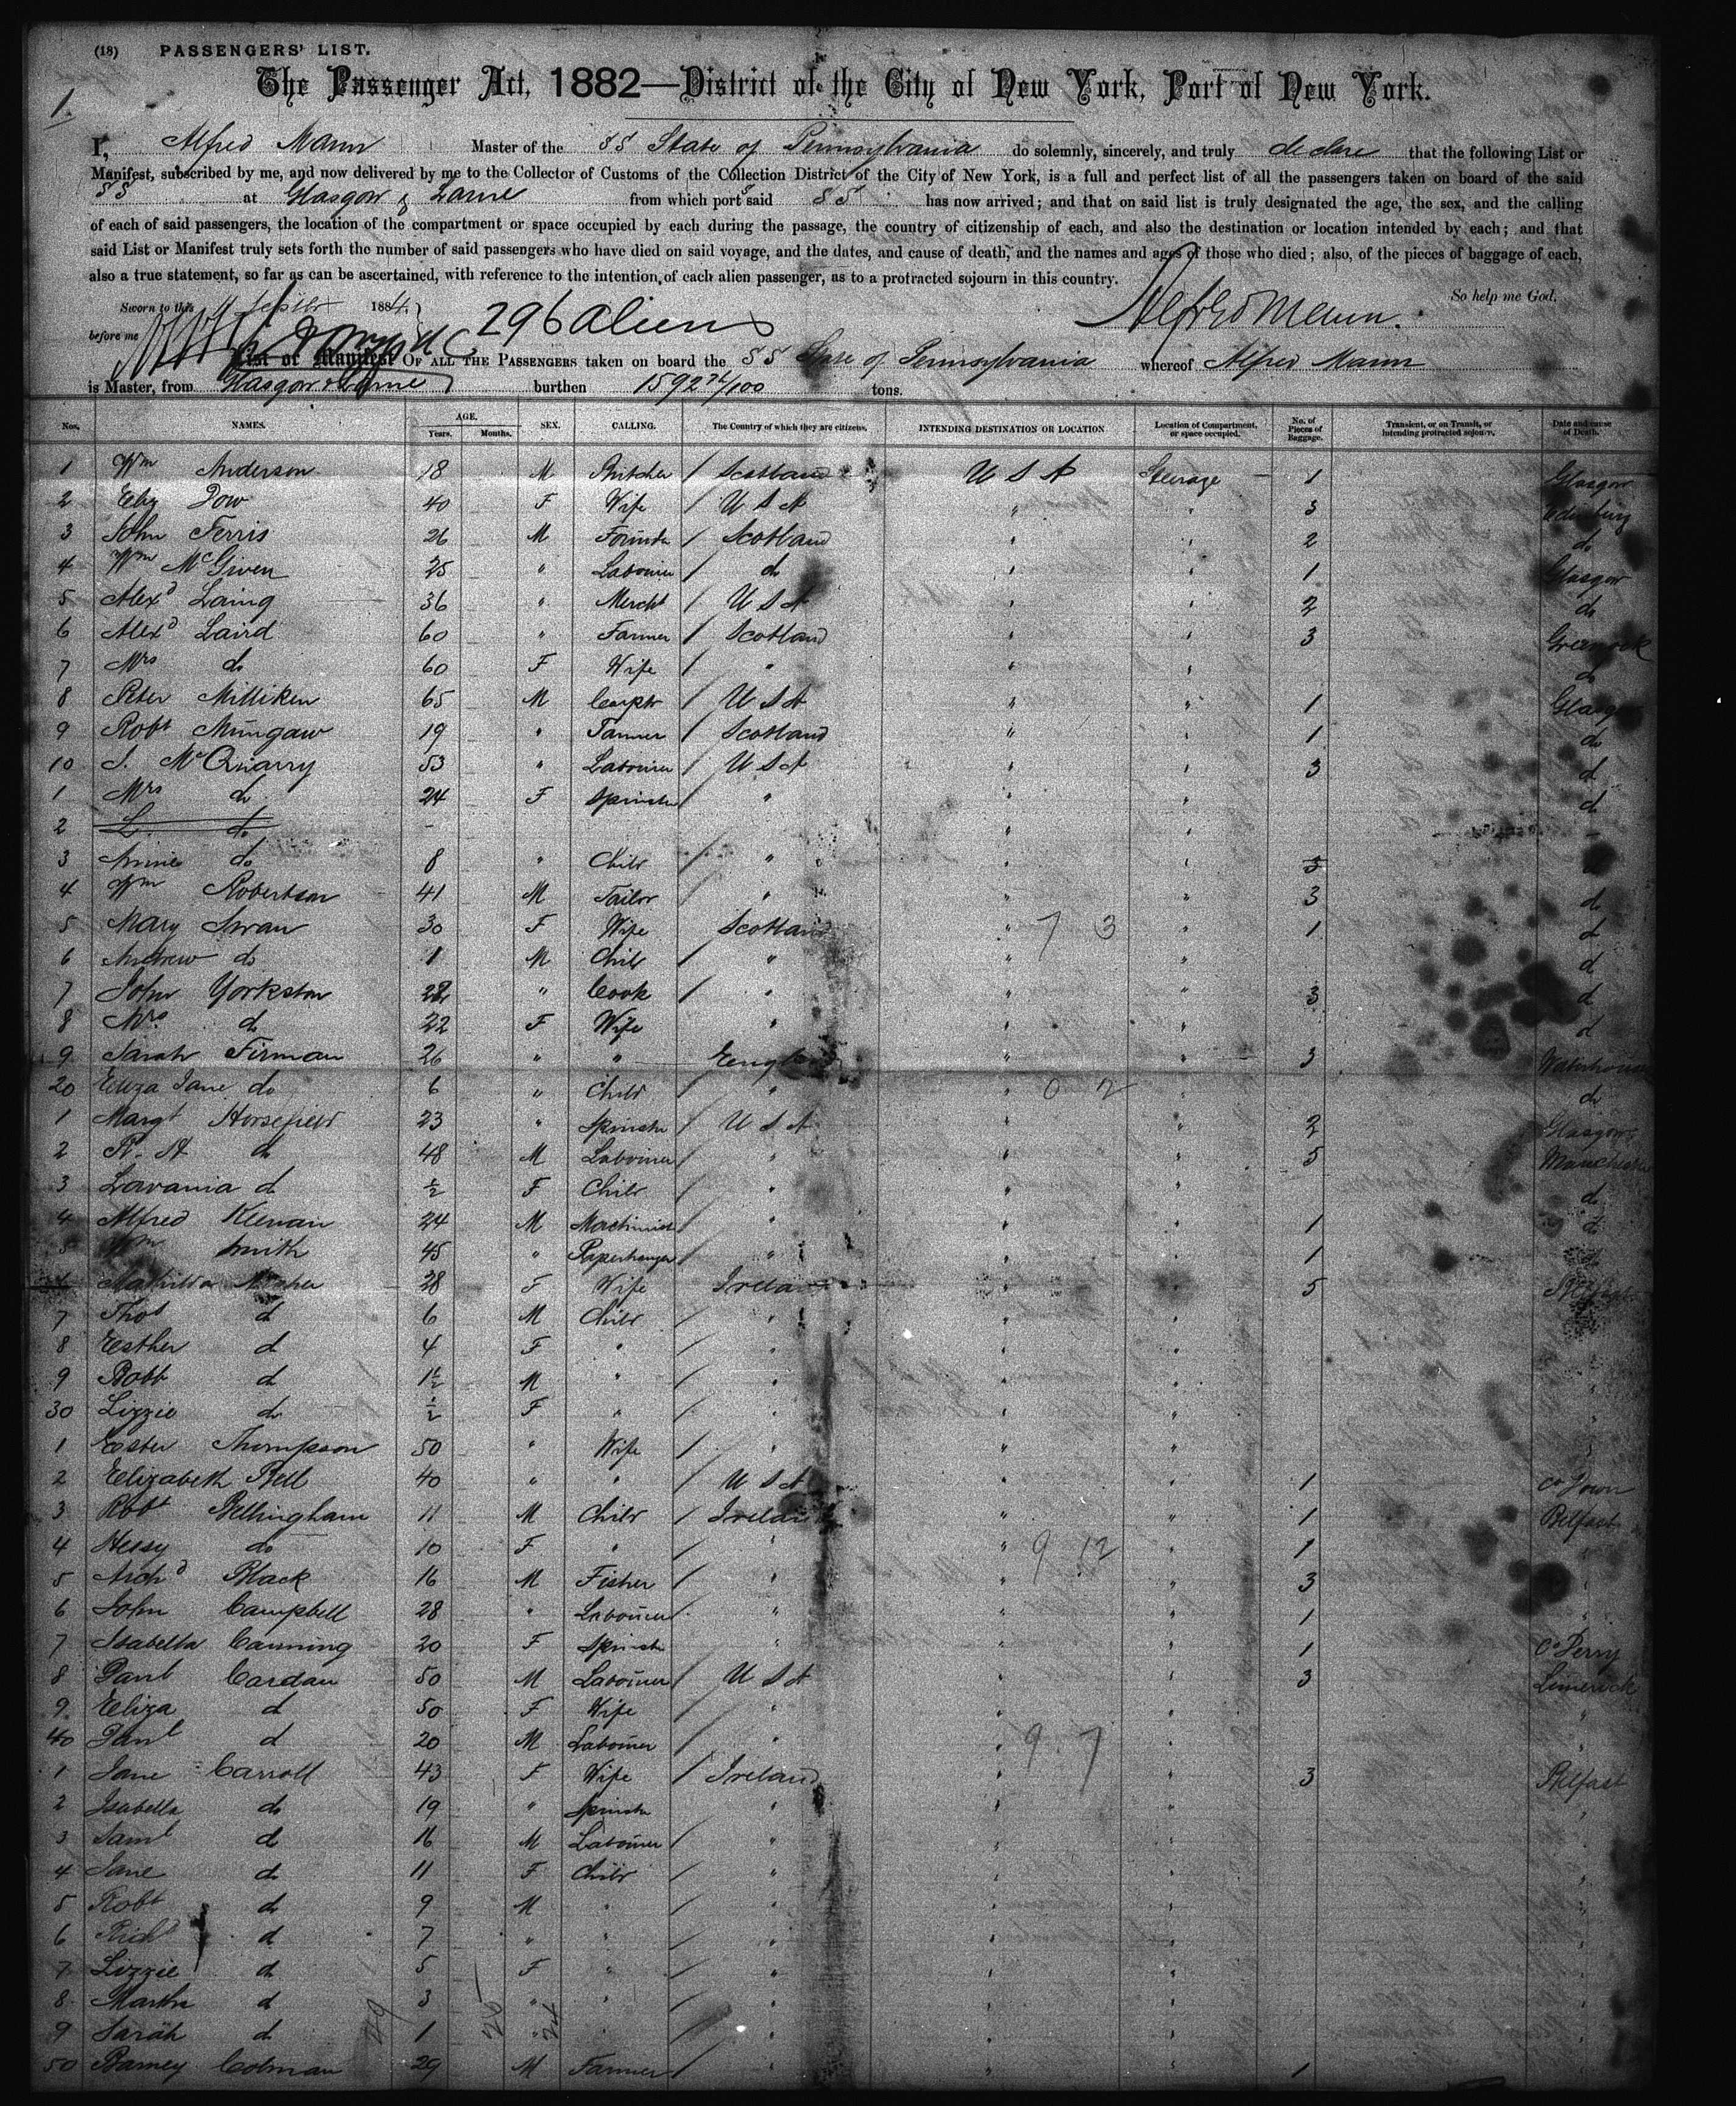 (18) PASSENGERS' LIST.
The Passenger Act, 1882—District of the City of New York, Port of New York.
1.
I, Alfred Mann Master of the SS State of Pennsylvania do solemnly, sincerely, and truly declare that the following List or
Manifest, subscribed by me, and now delivered by me to the Collector of Customs of the Collection District of the City of New York, is a full and perfect list of all the passengers taken on board of the said
SS at Glasgow & Larne from which port said SS has now arrived; and that on said list is truly designated the age, the sex, and the calling
of each of said passengers, the location of the compartment or space occupied by each during the passage, the country of citizenship of each, and also the destination or location intended by each; and that
said List or Manifest truly sets forth the number of said passengers who have died on said voyage, and the dates, and cause of death, and the names and ages of those who died; also, of the pieces of baggage of each,
also a true statement, so far as can be ascertained, with reference to the intention of each alien passenger, as to a protracted sojourn in this country.
So help me God.
Sworn to this 1884
before me 296 aliens Alfred Mann.
List or Manifest OF ALL THE PASSENGERS taken on board the SS State of Pennsylvania whereof Alfred Mann
is Master, from Glasgow & Larne burthen 1592 /100 tons.
Nos. NAMES. AGE. Years. Months. SEX. CALLING. The Country of which they are citizens. INTENDING DESTINATION OR LOCATION Location of Compartment, or space occupied. No. of Pieces of Baggage. Transient, or on Transit, or intending protracted sojourn. Date and cause of Death.
1 Wm Anderson 18 M Butcher / Scotland U S A Steerage 1 Glasgow
2 Eliz Dow 40 F Wife / U S A " " 3 Edinburg
3 John Ferris 26 M / Scotland " " 2 do
4 Wm McGiven 25 " Labourer / do " " 1 Glasgow
5 Alexd Laing 36 " Mercht / U S A " " 2 do
6 Alexd Laird 60 " Farmer / Scotland " " 3 Greenock
7 Mrs do 60 F Wife / " " " do
8 Peter Milliken 65 M Carptr / U S A " " 1 Glasgow
9 Robt Mungaw 19 " / Scotland " " 1 do
10 J. McQuarry 53 " Labourer / U S A " " 3 d
1 Mrs do 24 F Spinstr / " " " d
2 L. do " "
3 Annie do 8 " Child / " " " 3
4 Wm Robertson 41 M Tailor " " " 3 d
5 Mary Swan 30 F Wife Scotland " 7 3 " 1 d
6 Andrew do 1 M Child / " " " d
7 John Yorkston 28 " Cook / " " " 3 d
8 Mrs. d 22 F Wife " " " d
9 Sarah Firman 26 " " England " " 3
20 Eliza Jane do 6 " Child " " 0 2 " do
1 Margt Horsefield 23 " Spinstr / U S A " " 2 Glasgow
2 R. H d 48 M Labourer / " " " 5 Manchester
3 Lavania d ½ F Child / " " " do
4 Alfred Keenan 24 M Machinist / " " " 1 d
5 Wm Smith 45 " Paperhanger / " " " 1 d
28 F Wife Ireland " " 5 Belfast
7 Thos d 6 M Child / " " "
8 Esther d 4 F " / " " "
9 Robt d 1½ M " / " " "
30 Lizzie do ½ F " / " " "
1 Ester Thompson 50 " Wife / " " "
2 Elizabeth Bell 40 " " / U S A " " 1 Co Down
3 Robt Bellingham 11 M Child / Ireland " " 1 Belfast
4 Hessy do 10 F " / " " 9 12 " 1
5 Archd Black 16 M Fisher / " " " 3
6 John Campbell 28 " Labourer " " " 1
7 Isabella Canning 20 F Spinstr " " " 1 Co Derry
8 Danl Cardan 50 M Labourer / U S A " " 3 Limerick
9 Eliza d 50 F Wife " " "
40 Danl d 20 M Labourer / " " 9 7 "
1 Jane Carroll 43 F Wife / Ireland " " 3 Belfast
2 Isabella do 19 " Spinstr " " "
3 Saml d 16 M Labourer / " " "
4 Jane do 11 F Child / " " "
5 Robt d 9 M " / " " "
6 Richd d 7 " " / " " "
7 Lizzie d 5 F " / " " "
8 Martha d 3 " " / " " "
9 Sarah d 1 " " / " " "
50 Barney Colman 29 M Farmer / " " " 1